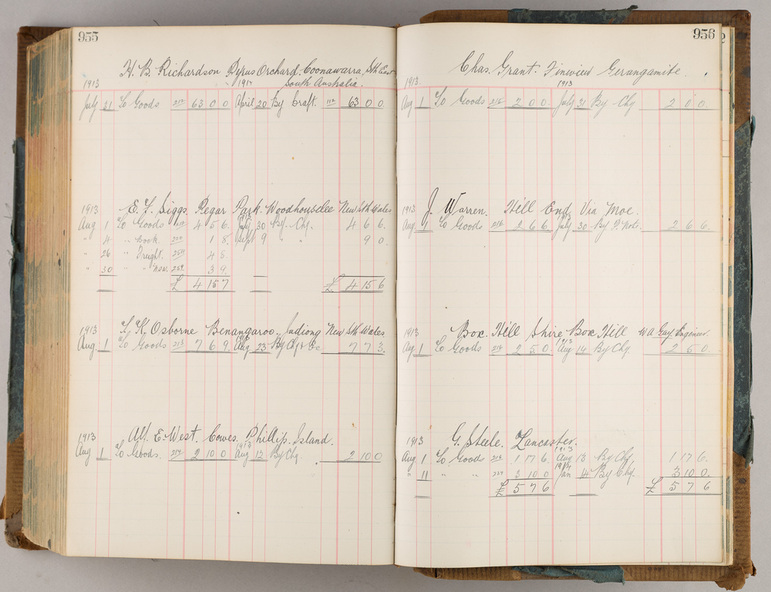 955
H. B. Richardson Pyrus Orchard, Coonawarra, Sth East
1913 1914 South Australia.
July 21 To Goods 63 0 0 April 20 By Craft. 63 0 0
E. F. Siggs Regar Park Woodhouselee New Sth Wales
1913
Aug 1 To Goods 4 5 6 July 30 By Chq. 4 6 6
4 " Book 1 5 Sept 9 " 9 0
" 26 " Freight 4 5
" 30 " 3 9
£ 4 15 7 £ 4 15 6
1913 Osborne Benangaroo, Jindiong New Sth Wales
Aug 1 To Goods 7 6 9 Aug 23 By Chq 7 7 3
1913 E. West. Cowes. Phillip. Island.
Aug 1 To Goods. 2 10 0 Aug 12 By Chq 2 10 0
956
Chas. Grant. Gerangamite.
1913 1913
Aug 1 To Goods 2 0 0 July 31 By Chq 2 0 0
1913 J. Warren. Hill End, Via Moe.
Aug 1 To Goods 2 6 6 July 30 By P. Note. 2 6 6
1913 Box Hill Shire Box Hill W A Gay Engineer
Aug 1 To Goods 2 5 0 Aug 14 By Chq
1913 G. Steele. Lancaster.
Aug 1 To Good 1 17 6 Aug 13 By Chq. 1 17 6
" 11 " " 3 10 0 Jan By Chq. 3 10 0
£ 5 7 6 £ 5 7 6